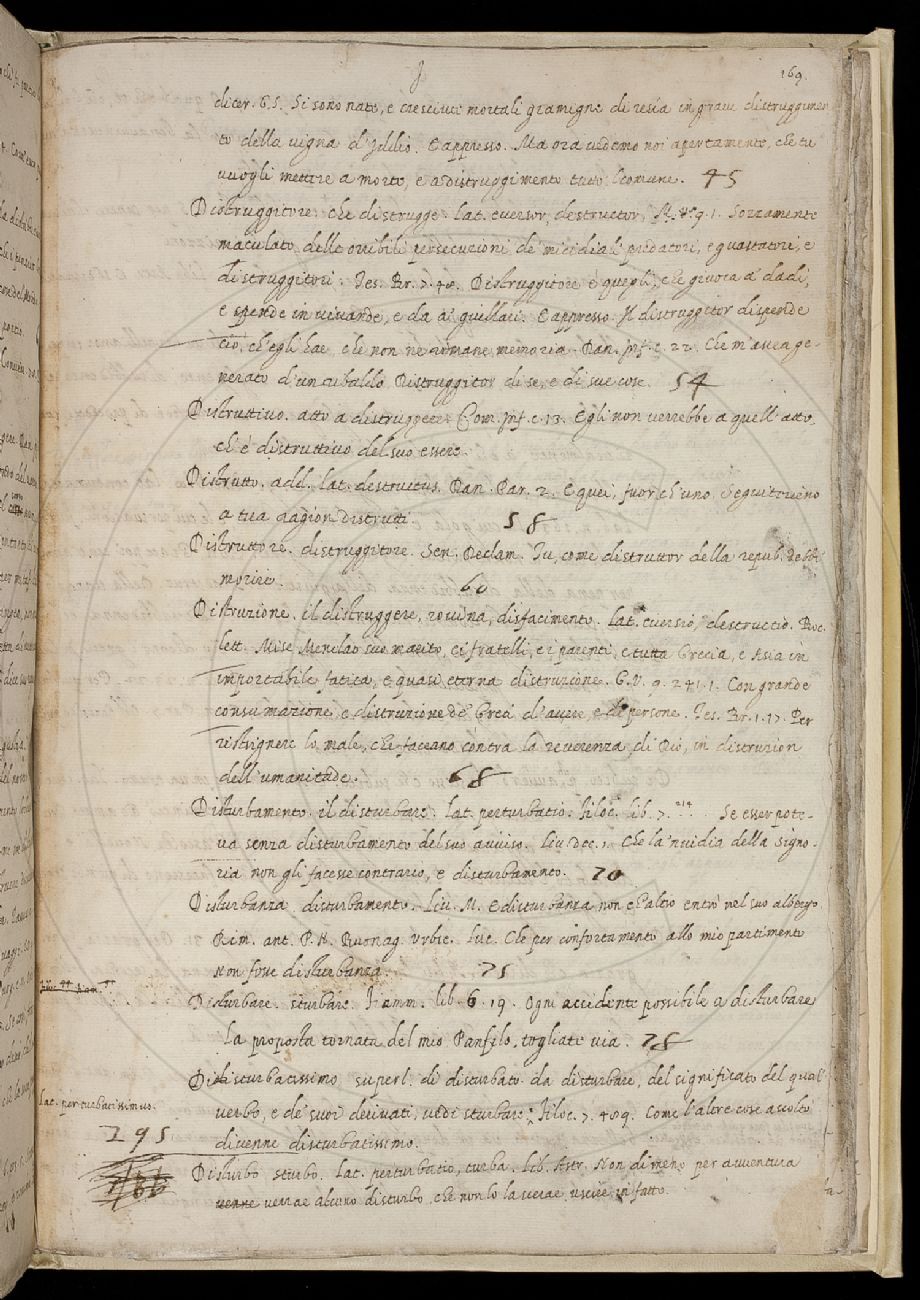 169.
dicer. 65. Si sono nate, e cresciute mortali gramigne di resia in grave distruggimen
to della vigna d'Iddio. E appresso. Ma ora vedemo noi apertamente, che tu
vuogli mettere a morte, e a distruggimento tutto 'l comune. 45
Distruggitore. che distrugge. lat. eversor, destructor, 9.1. Sozzamente
maculato delle orribili persecuzioni de' micidiali predatori, e guastatori, e
distruggitori. Tes. Br. 7.48. Distruggitore è quegli, che giuoca a' dadi,
e spende in vivande, e da ai giullari. E appresso. Il distruggitor dispende
ciò, ch'egli hae che non ne rimane memoria. Dan. Inf. c. 22. Che m'avea ge-
nerato d'un ribaldo Distruggitor di se, e di sue cose. 54
Distruttivo. atto a distruggere. Com. Inf. c. 13. Egli non verrebbe a quell'atto,
ch'è distruttivo del suo essere.
Distrutto. add. lat. destructus. Dan. Par. 2. E quei, fuor ch'uno Seguiterieno
a tua ragion distrutti. 58
Distruttore. distruggitore. Sen. Declam. Tu, come distruttor della repub. debbi
morire. 60
Distruzione, il distruggere, rovina, disfacimento. lat. eversio, destructio. Boc.
lett. Mise Menelao suo marito, ei fratelli, e i parenti, e tutta Grecia, e Asia in
importabile fatica, e quasi eterna distruzione. G.V. 9.241.1. Con grande
consumazione, e distruzione de' Greci d'avere e di persone. Tes. Br. 1.17. Per
ristrignere lo male, che faceano contra la reverenza di Dio, in distruzion
dell'umanitade. 68
Disturbamento. il disturbare. lat. perturbatio. Filoc. lib. 7. 214 Se esser pote-
va senza disturbamento del suo avviso. Liv. Dec. 1. Che la 'nvidia della signo-
ria non gli facesse contrario, e disturbamento. 70
Disturbanza disturbamento. Liv. M. E disturbanza non e l'altro entrò nel suo albergo.
Rim. ant. P.N. Buonag. Urbic. Luc. Che per confortamento allo mio partimento
Non fosse disturbanza. 75
Disturbare. sturbare. Fiamm. lib. 6.19. Ogni accidente possibile a disturbare
la proposta tornata del mio Panfilo, togliate via. 78
Disturbatissimo superl. di disturbato da disturbare, del significato del qual
lat. perturbatissimus.
verbo, e de' suoi derivati, vedi sturbare. Filoc. 7.489. Come l'altre cose ascoltò
295
divenne disturbatissimo.
Disturbo sturbo. lat. perturbatio, turba. lib. Astr. Non di meno per avventura
venne verrae alcuno disturbo che non lo laverae uscire in fatto.